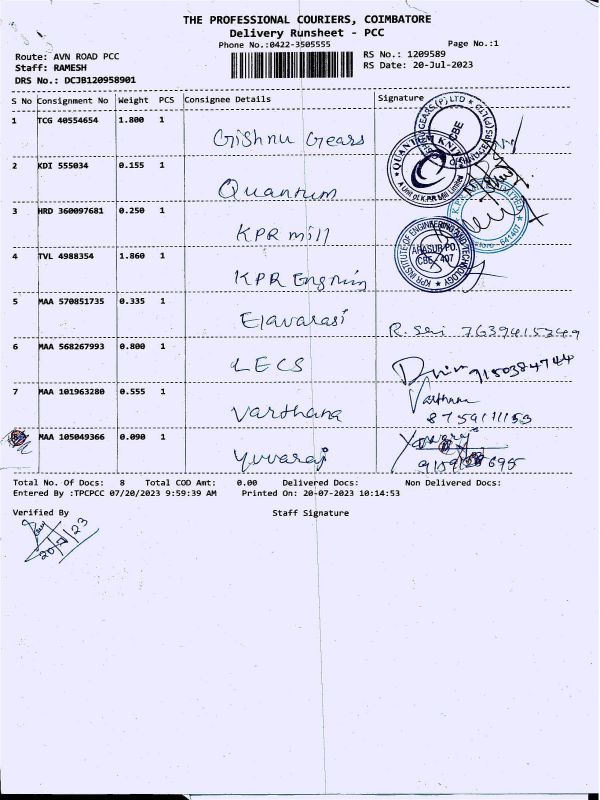 THE PROFESSIONAL COURIERS, COIMBATORE
Delivery Runsheet - PCC
Phone No.:0422-3505555
Page No.:1
Route: AVN ROAD PCC
RS No.: 1209589
Staff: RAMESH
RS Date: 20-Jul-2023
DRS No.: DCJB120958901
S No Consignment No Weight PCS Consignee Details Signature
1 TCG 40554654 1.800 1 Gishnu Gears
2 KDI 555034 0.155 1 Quantum
3 HRD 360097681 0.250 1 KPR mill
4 TVL 4988354 1.860 1 KPR Engning
5 MAA 570851735 0.335 1 Elavarasi R. Sei 7639415249
6 MAA 568267993 0.800 1 LECS 9150384744
7 MAA 101963280 0.555 1 Varthana Varthana
8759111153
MAA 105049366 0.090 1 Yuvaraj Yuvaraj
695
QUANTUM KNITS
A Unit of K.P.R Mill Limited
CBE
KPR INSTITUTE OF ENGINEERING AND TECHNOLOGY
ARASUR PO.
CBE - 407
641407
Total No. Of Docs: 8 Total COD Amt: 0.00 Delivered Docs: Non Delivered Docs:
Entered By :TPCPCC 07/20/2023 9:59:39 AM Printed On: 20-07-2023 10:14:53
Verified By Staff Signature
20/7/23